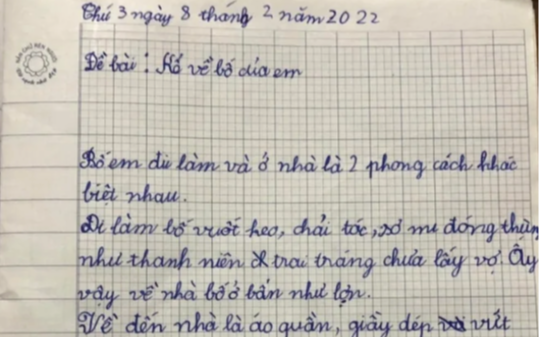 Thứ 3 ngày 8 tháng 2 năm 2022
Đề bài: Kể về bố của em
Bố em đi làm và ở nhà là 2 phong cách khác
biệt nhau.
Đi làm bố vuốt keo, chải tóc, sơ mi đóng thùng
như thanh niên trai tráng chưa lấy vợ. Ấy
vậy về nhà bố ở bẩn như lợn.
Về đến nhà là áo quần, giầy dép vứt